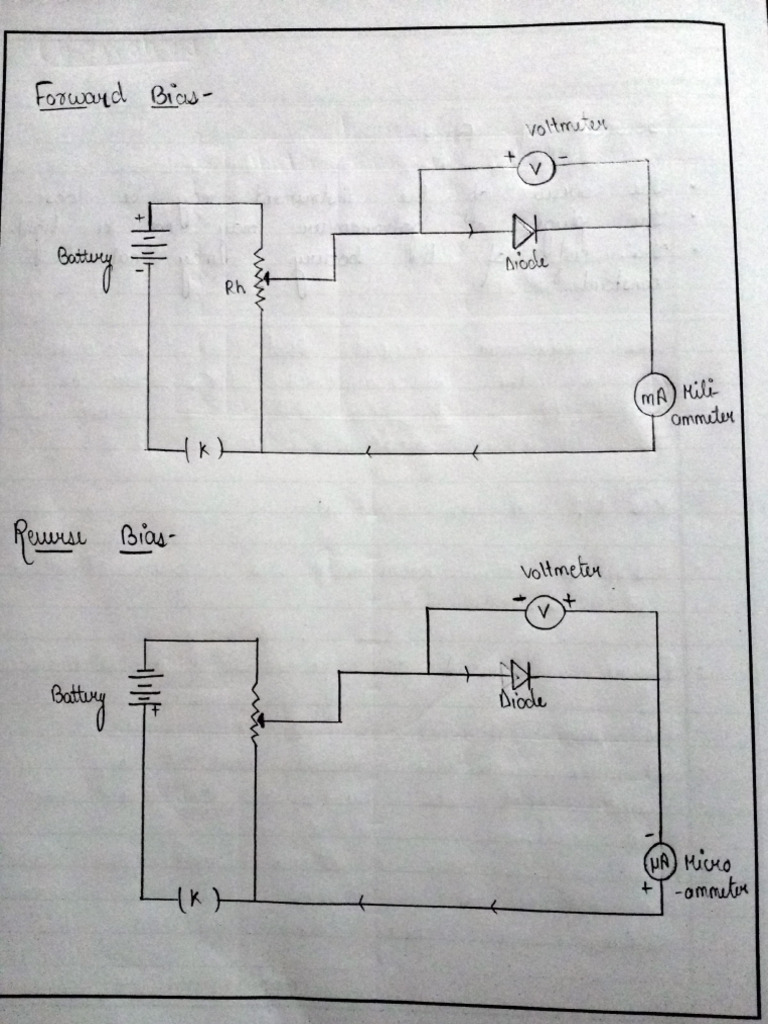 Forward Bias-
voltmeter
+ V -
+
Battery
-
Rh
Diode
mA Mili
ammeter
( K )
Reverse Bias-
voltmeter
- V +
Battery
+
Diode
-
µA Micro
+ -ammeter
( K )